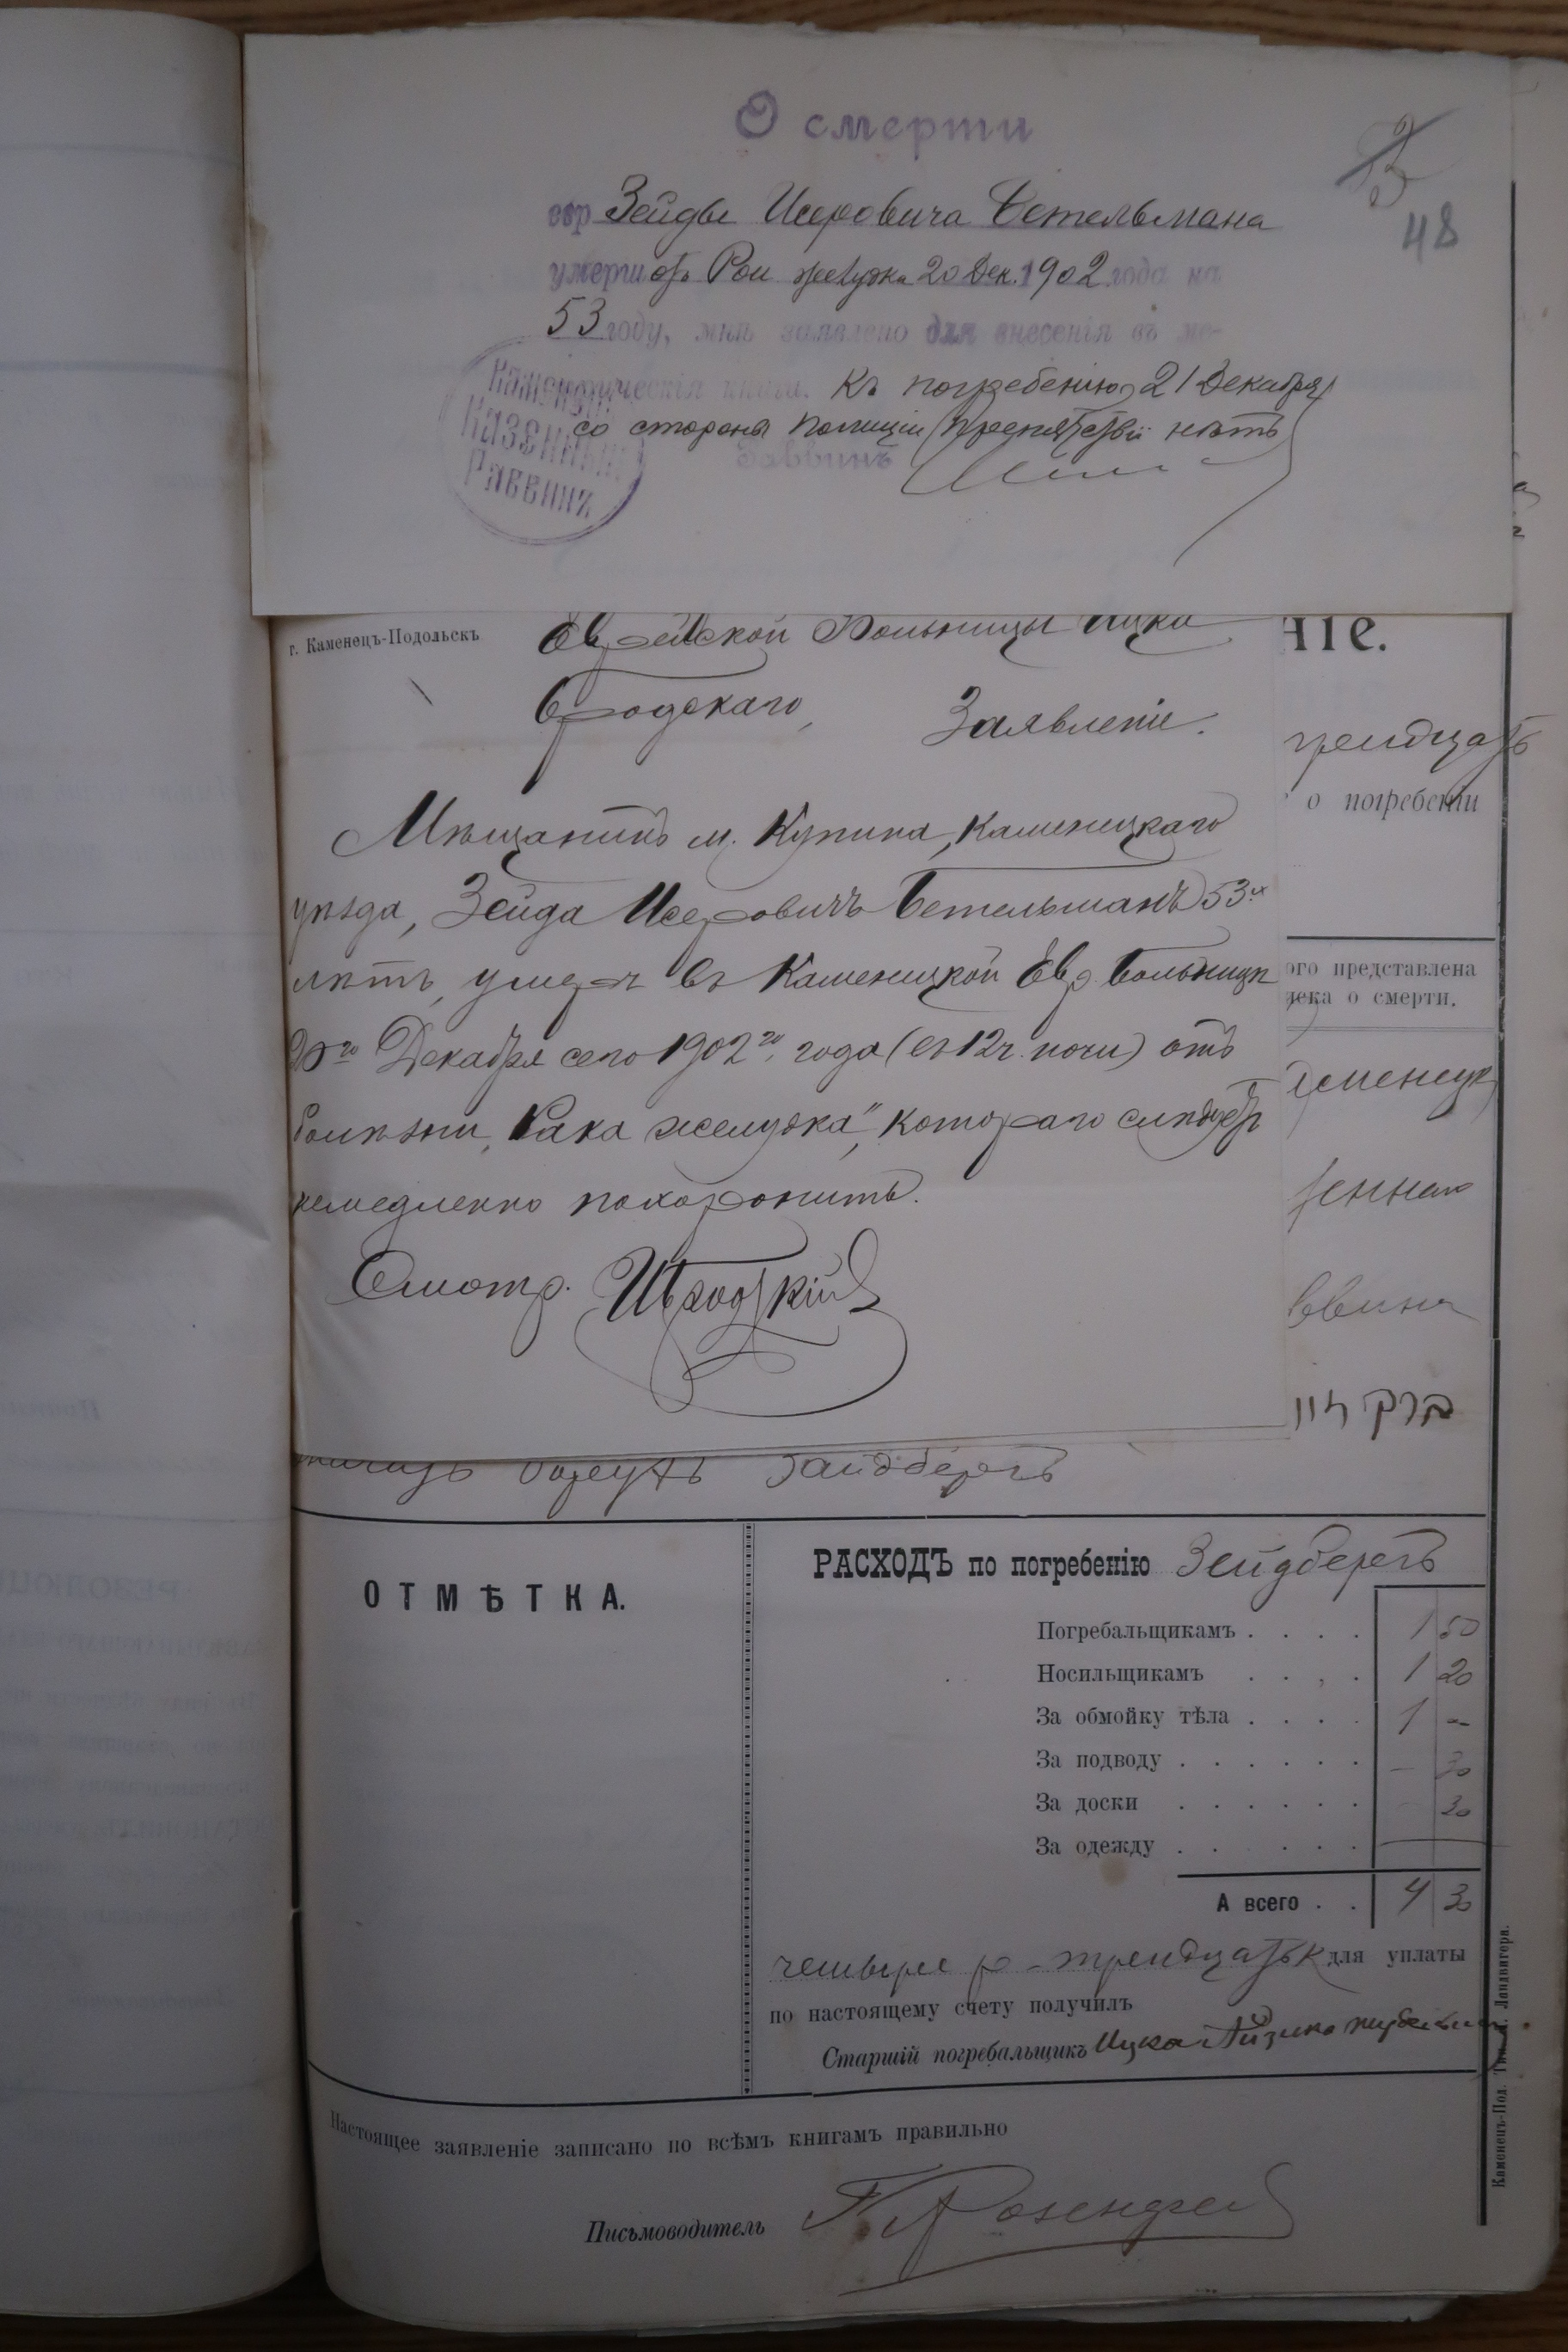 О смерти
48
евр Зейды Иееровича Бетельмана
умерш отъ Рои желудка 20 Дек. 1902 года на
53 году, мнѣ заявлено для внесенія въ ме-
трическія книги. Къ погребенію 21 Декабря
со стороны полиціи препятствій нѣтъ
Раввинъ
Казенный
Раввинъ
г. Каменецъ-Подольскъ
Еврейской Больницы Ицки
НІЕ.
Бродскаго,
Заявленіе.
тридцать
о погребеніи
Мѣщанинъ м. Купина, Каменецкаго
уѣзда, Зейда Исеровичъ Бетельманъ 53х
лѣтъ, умеръ въ Каменецкой Евр. Больницѣ
ого представлена
о смерти.
20го Декабря сего 1902го года (въ 12 ч. ночи) отъ
болѣзни „Рака желудка", котораго слѣдуетъ
немедленно похоронить.
Смотр.
ОТМѢТКА.
РАСХОДЪ по погребенію Зейдберегъ
Погребальщикамъ . . . . 1 50
Носильщикамъ . . . . 1 20
За обмойку тѣла . . . . 1 --
За подводу . . . . . . — 30
За доски . . . . . . 30
За одежду . . . . . .
А всего . . 4 30
четыре р - тридцать к для уплаты
по настоящему счету получилъ
Старшій погребальщикъ Ицко Айзикъ
Настоящее заявленіе записано по всѣмъ книгамъ правильно
Письмоводитель
Каменецъ-Под. Тип. Ландвигера.